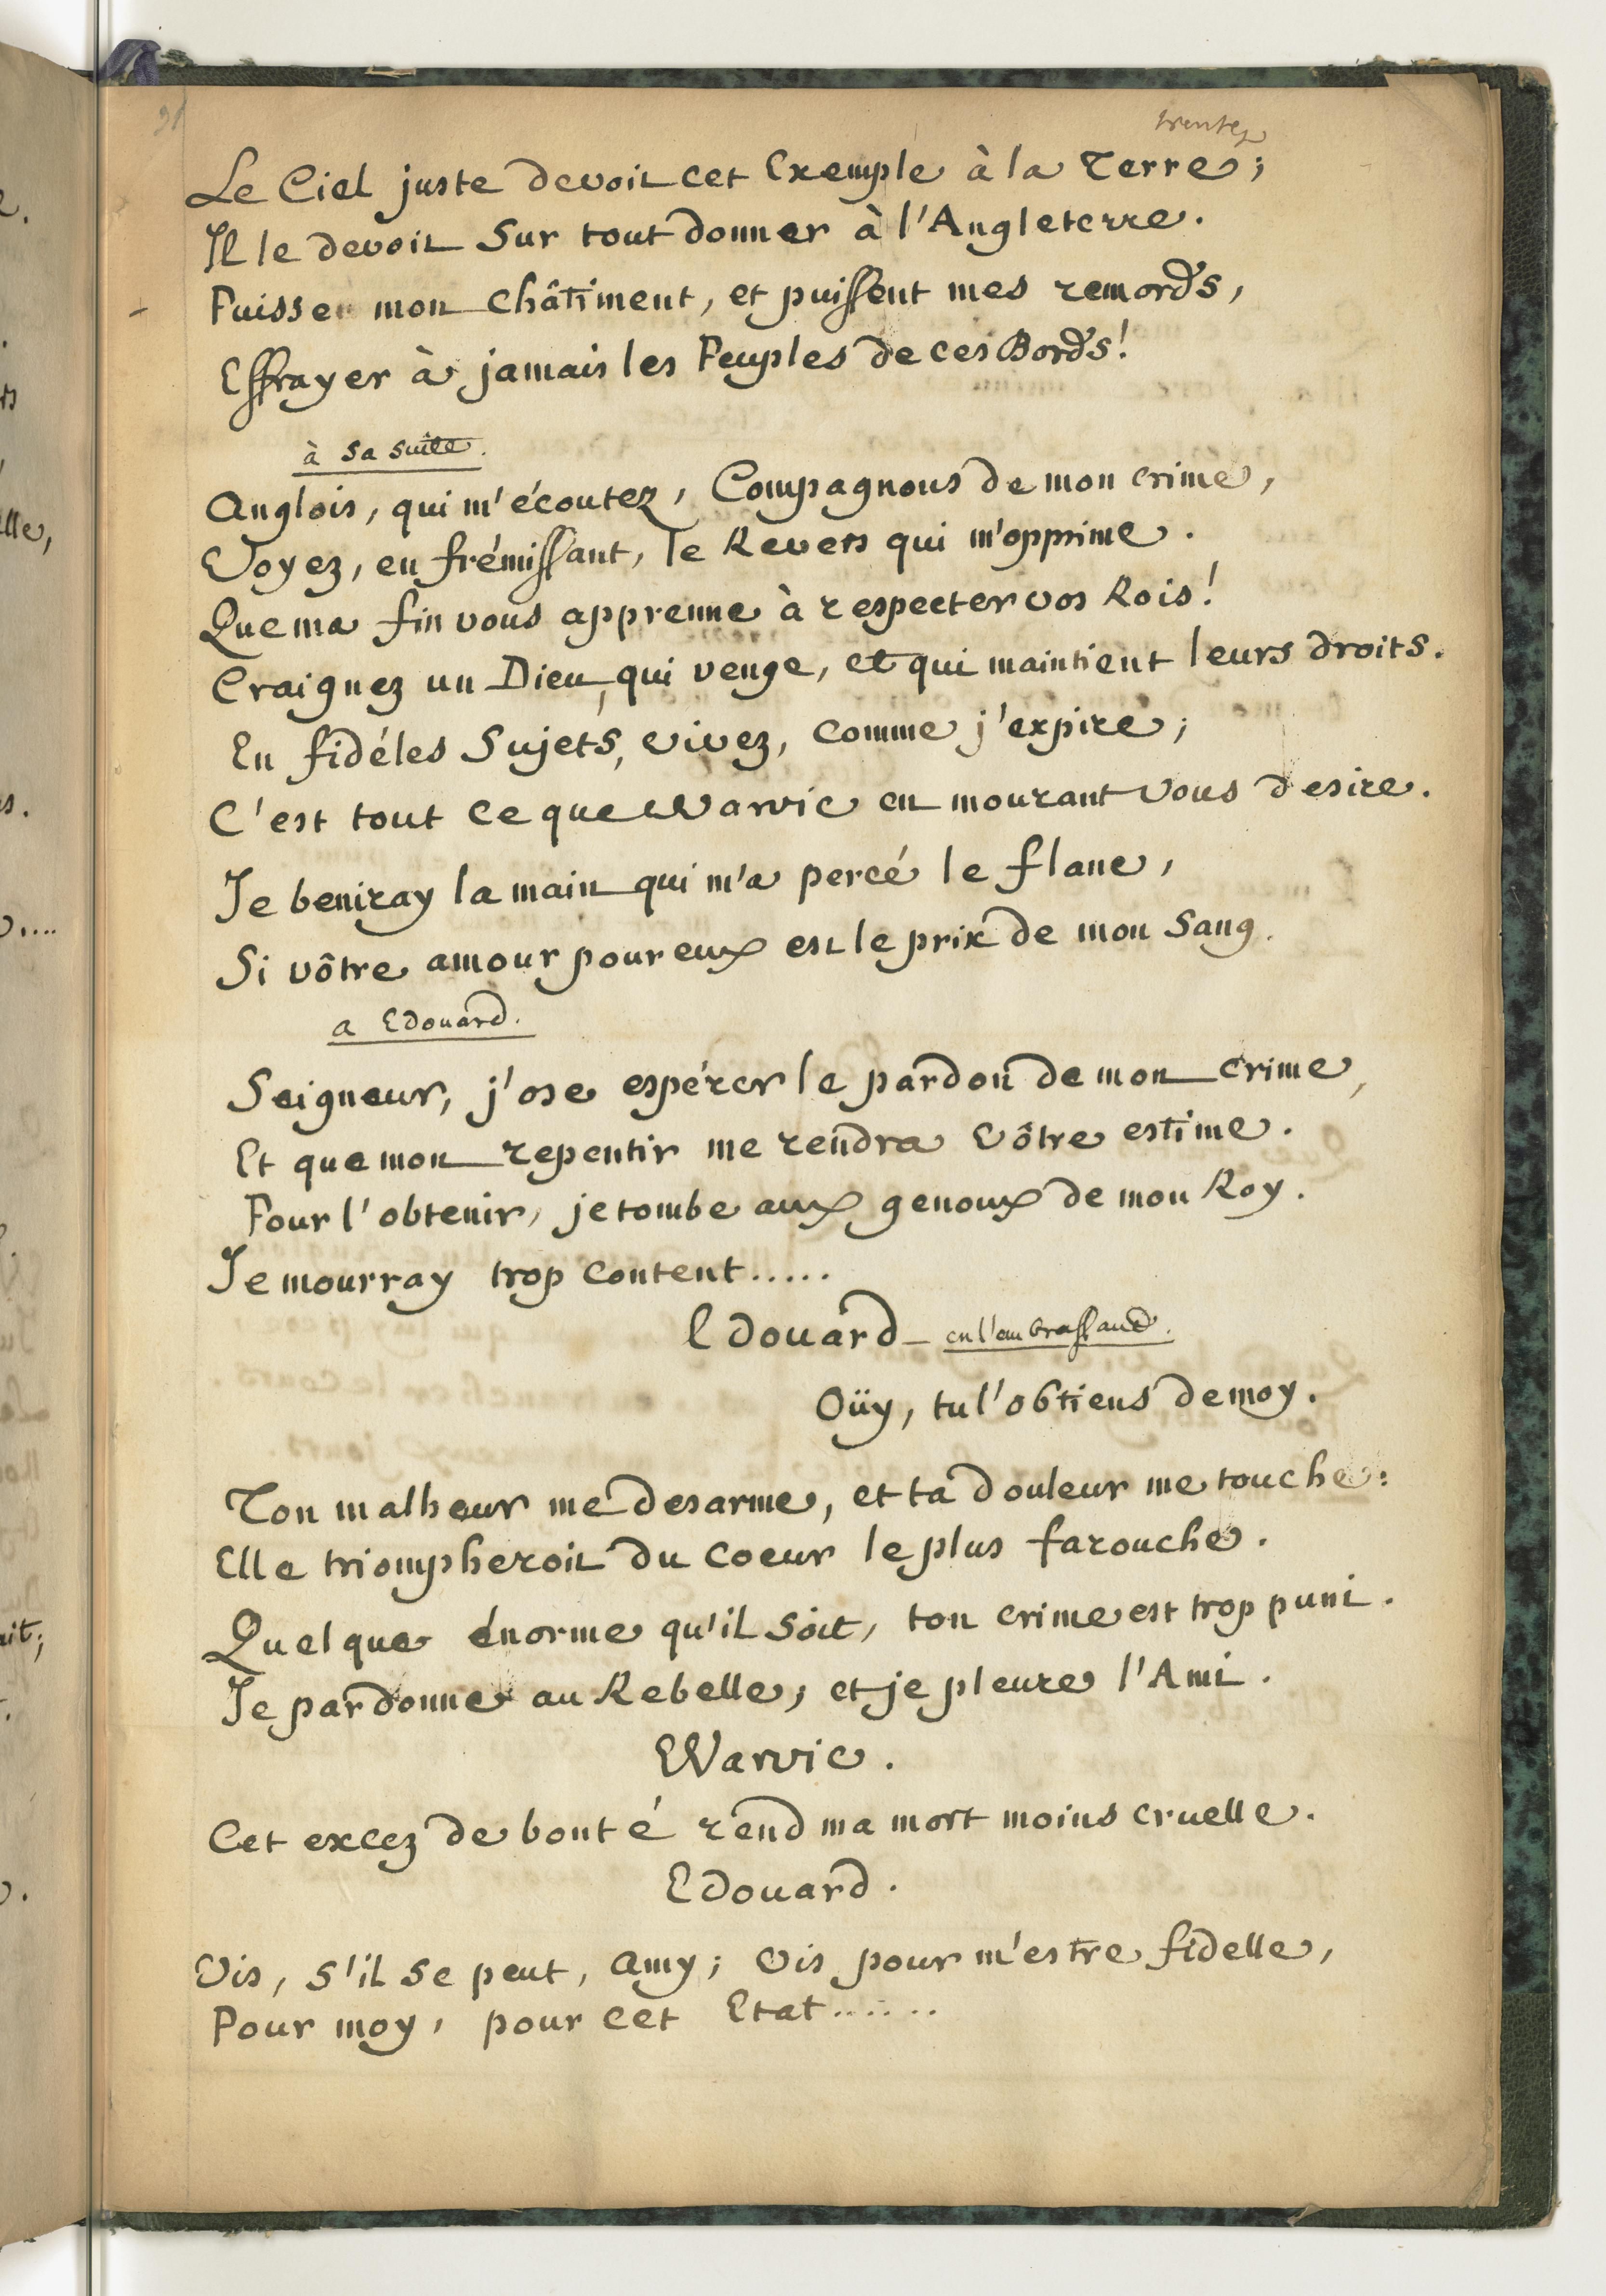 31
trente
Le Ciel juste devoit cet Exemple à la Terre;
Il le devoit Sur tout donner à l'Angleterre.
Puisse mon châtiment, et puissent mes remords,
Effrayer à jamais les Peuples de ces Bords!
à sa suite.
Anglois, qui m'écoutez, Compagnons de mon crime,
Voyez, en frémissant, le Revers qui m'opprime.
Que ma fin vous apprenne à respecter vos Rois!
Craignez un Dieu, qui venge, et qui maintient leurs droits.
En fidéles Sujets, vivez, comme j'expire;
C'est tout ce que Warvic en mourant vous desire.
Je beniray la main qui m'a percé le flanc,
Si vôtre amour pour eux est le prix de mon Sang.
a Edouard.
Seigneur, j'ose espérer le pardon de mon crime,
Et que mon repentir me rendra vôtre estime.
Pour l'obtenir, je tombe aux genoux de mon Roy.
Je mourray trop content.....
Edouard - en l'embrassant.
Oüy, tu l'obtiens de moy.
Ton malheur me desarme, et ta douleur me touche:
Elle triompheroit du coeur le plus farouche.
Quelque énorme qu'il soit, ton crime est trop puni.
Je pardonne au Rebelle, et je pleure l'Ami.
Warvic.
Cet excez de bonté rend ma mort moins cruelle.
Edouard.
Vis, s'il se peut, Amy; vis pour m'estre fidelle,
Pour moy, pour cet Etat......